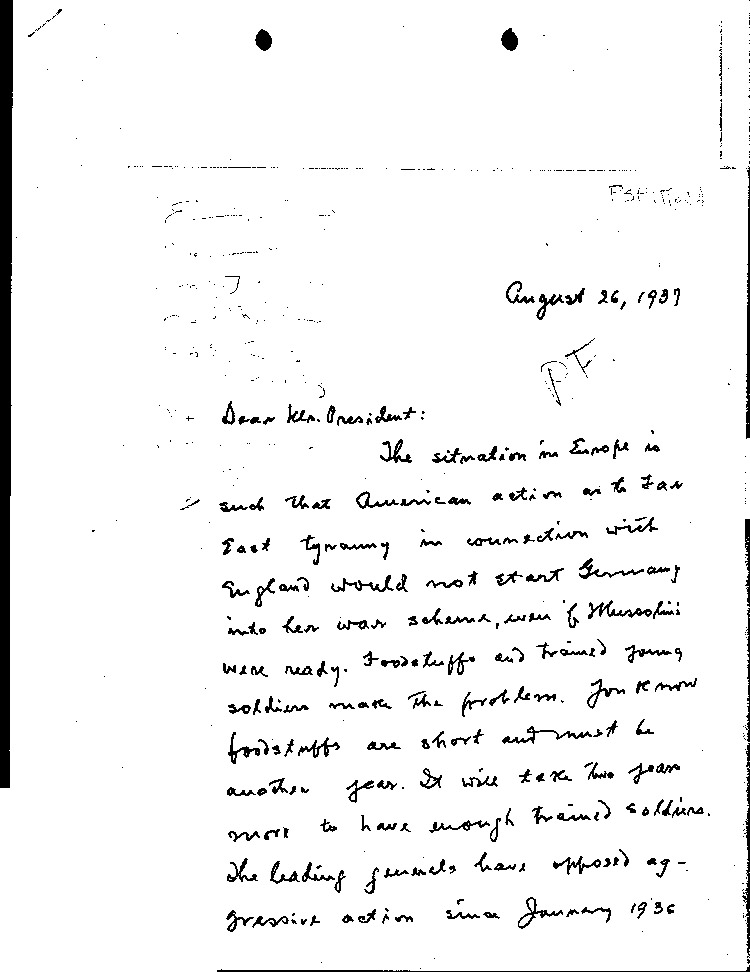 PSF:
August 26, 1937
P.F.
Dear Mr. President:
The situation in Europe is
such that American action as to Far
East tyranny in connection with
England would not start Germany
into her war scheme, even if Mussolini
were ready. Foodstuffs and trained young
soldiers make the problem. You know
foodstuffs are short and must be
another year. It will take two years
more to have enough trained soldiers.
The leading generals have opposed ag-
gressive action since January 1936